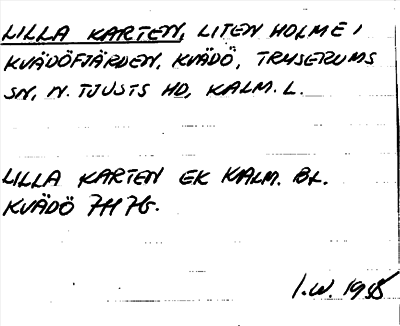 LILLA KARTEN, LITEN HOLME I
KVÄDÖFJÄRDEN, KVÄDÖ, TRYSERUMS
SN, N. TJUSTS HD, KALM. L.
LILLA KARTEN EK KALM. BL.
KVÄDÖ 7H 7G.
I.W. 1955